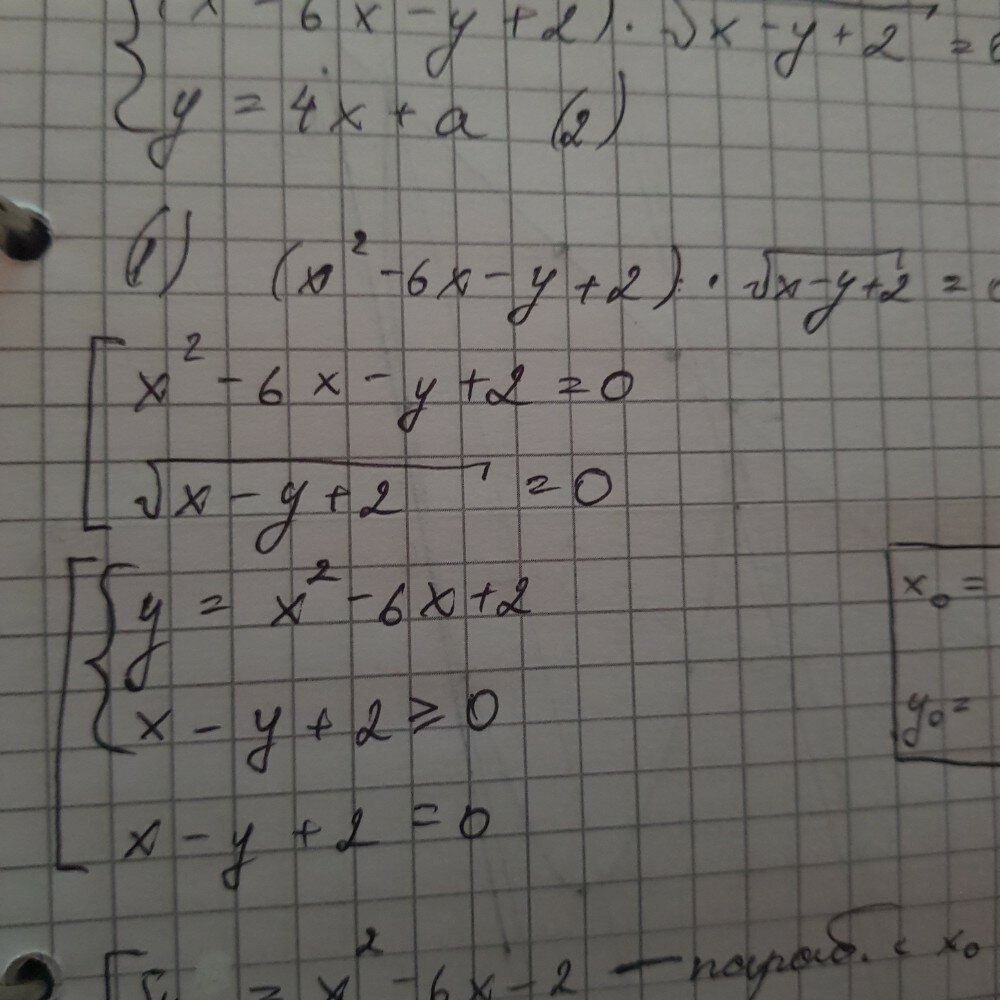 x - 6x - y + 2) · √x - y + 2 =
y = 4x + a (2)
(1) (x² - 6x - y + 2) · √x - y + 2 =
x² - 6x - y + 2 = 0
√x - y + 2 = 0
y = x² - 6x + 2
x₀ =
x - y + 2 ≥ 0
y₀ =
x - y + 2 = 0
= x² - 6x - 2 — параб. с x₀